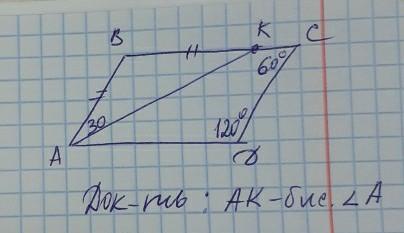 B K C
60°
30
120°
A D
Док-ть: АК-бис. ∠А